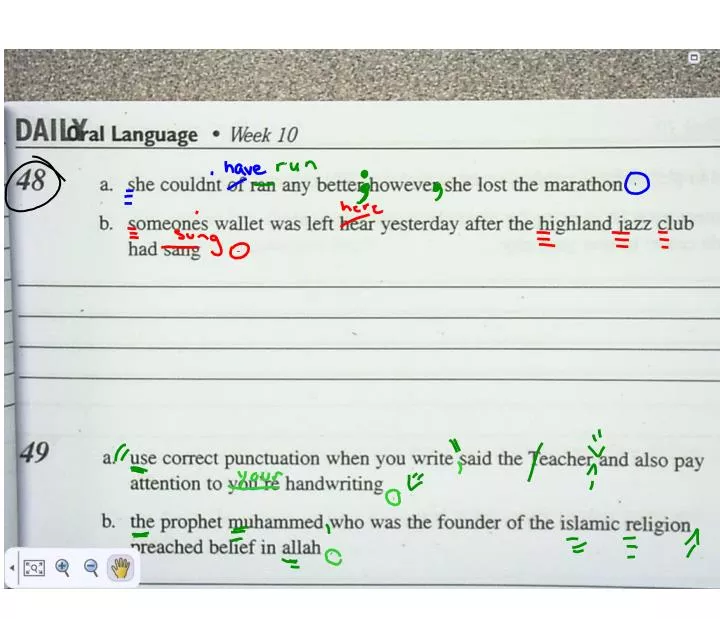 DAILY Oral Language • Week 10
have run
48 a. she couldnt of ran any better; however, she lost the marathon
here
b. someones wallet was left hear yesterday after the highland jazz club
sung
had sang
49 a. "use correct punctuation when you write," said the Teacher, "and also pay
your
attention to you're handwriting
b. the prophet muhammed, who was the founder of the islamic religion,
preached belief in allah